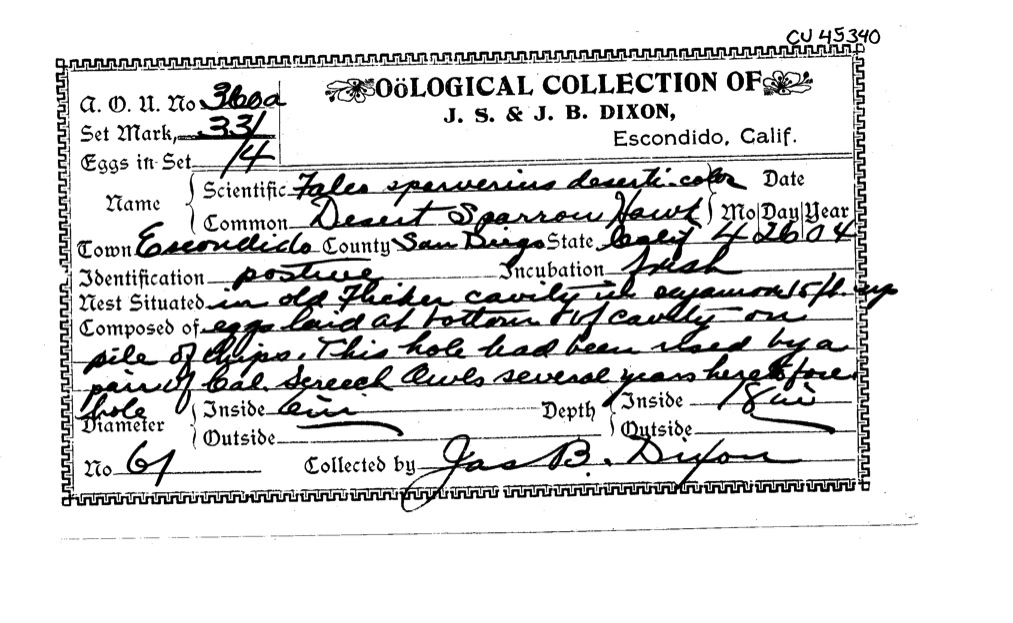 CU 45340
OöLOGICAL COLLECTION OF
J. S. & J. B. DIXON,
Escondido, Calif.
A. O. U. No 360a
Set Mark, 33/
Eggs in Set /4
Name Scientific Falco sparverius deserti-color Date
Common Desert Sparrow Hawk Mo Day Year
Town Escondido County San Diego State Calif 4 26 04
Identification postive Incubation fresh
Nest Situated in old Flicker cavity in sycamore 15 ft. up
Composed of eggs laid at bottom of cavity on
pile of chips. This hole had been used by a
pair of Cal. Screech Owls several years heretofore
hole
Diameter Inside 6in Depth Inside 18in
Outside Outside
No 61 Collected by Jas B. Dixon